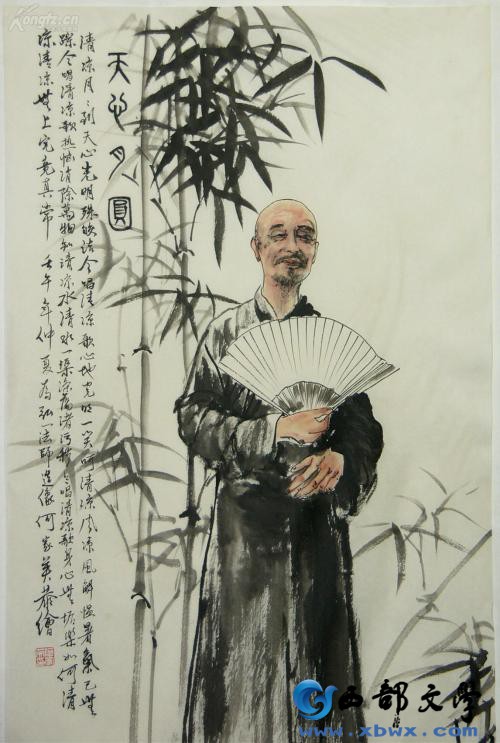 天心月圓
清凉月月到天心光明殊皎潔今唱清凉歌心地光明一笑呵清凉風凉風解愠暑氣已無
踪今唱清凉歌熱惱消除萬物和清凉水清水一渠滌蕩諸污穢今唱清凉歌身心無垢樂如何清
凉清凉無上究竟真常 壬午年仲夏為弘一法師造像何家英恭繪
Kongfz.cn
西部文學
www.xbwx.com